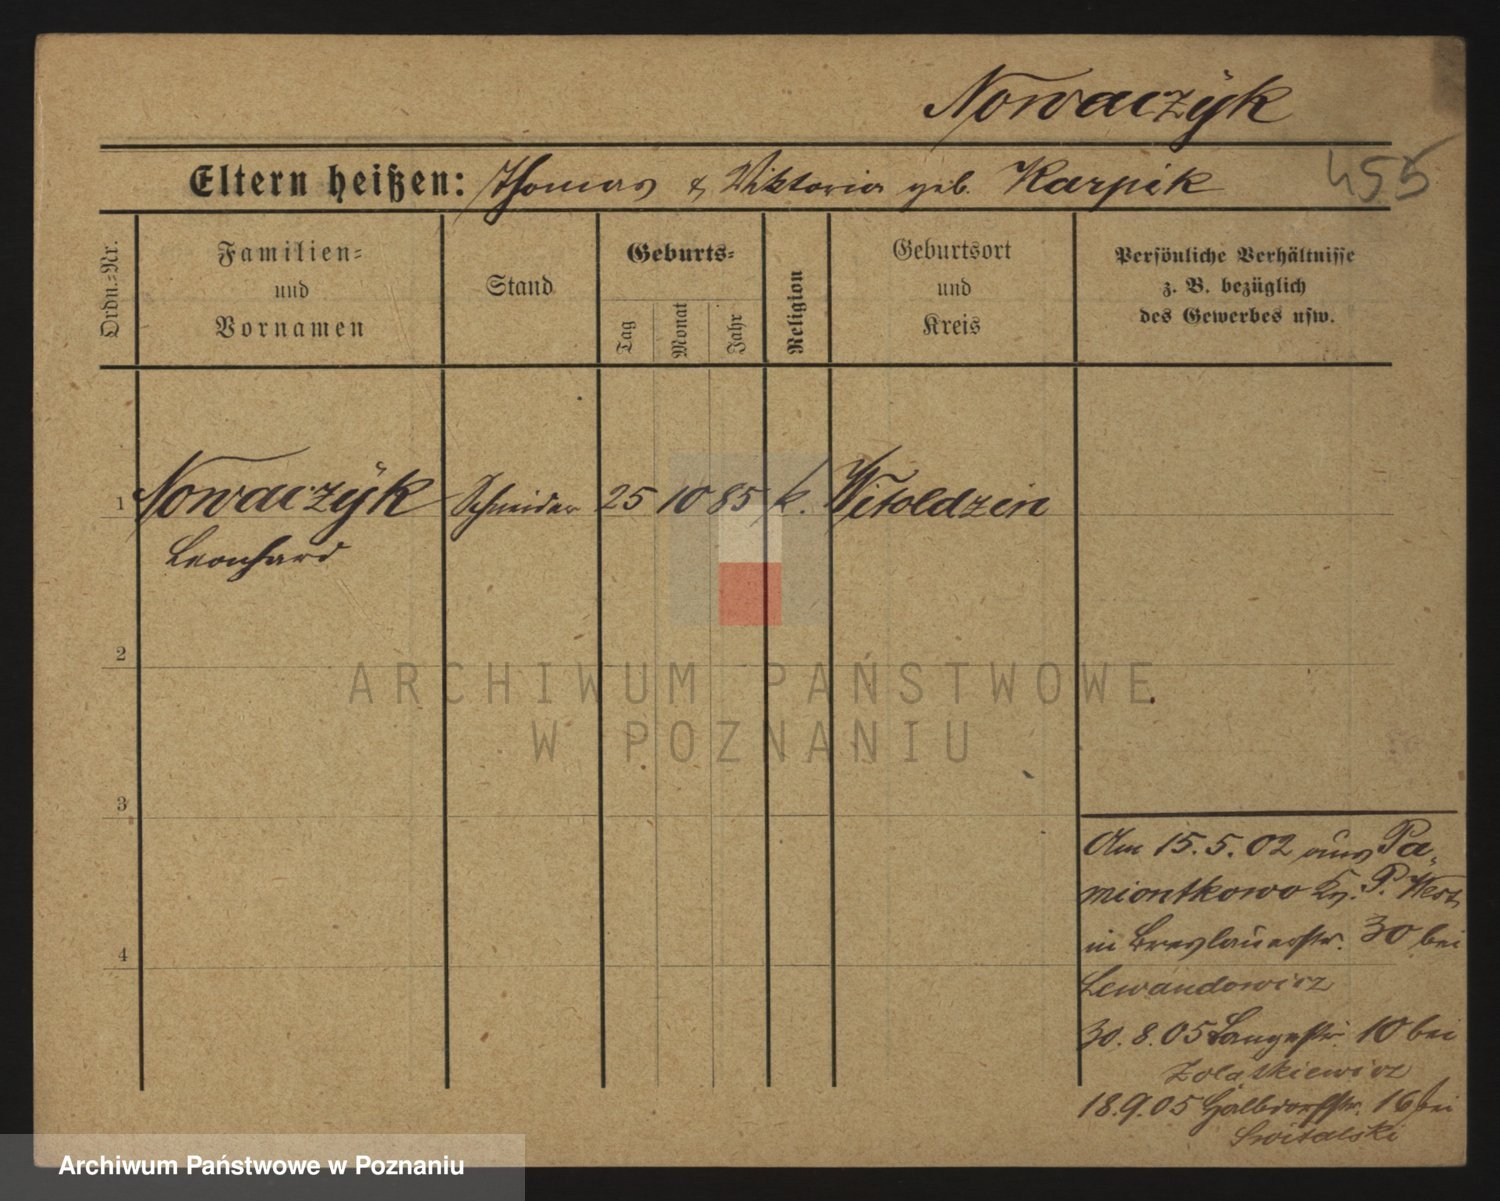 Nowaczÿk
455
Eltern heißen: Thomas & Viktoria geb. Karpik
Ordn.-Nr.
Familien-
und
Vornamen
Stand
Geburts-
Tag
Monat
Jahr
Religion
Geburtsort
und
Kreis
Persönliche Verhältnisse
z. B. bezüglich
des Gewerbes usw.
1 Nowaczÿk Schneider 25 10 85 k. Witoldzin
Leonhard
2
3
4
Am 15.5.02 aus Pa-
miontkowo Kr. P. West
in Breslauerstr. 30 bei
Lewandowicz
30.8.05 Langestr. 10 bei
Zolątkiewicz
18.9.05 Halbdorfstr. 16 bei
Switalski
ARCHIWUM PAŃSTWOWE
W POZNANIU
Archiwum Państwowe w Poznaniu